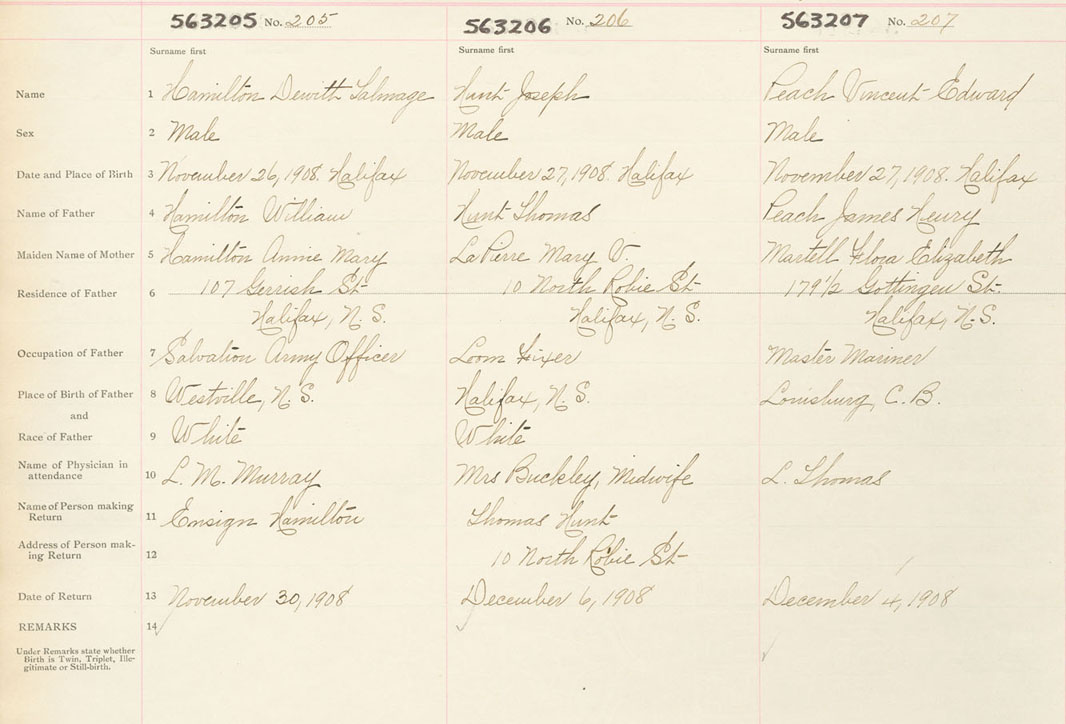 563205 No. 205 563206 No. 206 563207 No. 207
Surname first Surname first Surname first
Name 1 Hamilton Dewitt Talmage Hunt Joseph Peach Vincent Edward
Sex 2 Male Male Male
Date and Place of Birth 3 November 26, 1908. Halifax November 27, 1908. Halifax November 27, 1908. Halifax
Name of Father 4 Hamilton William Hunt Thomas Peach James Henry
Maiden Name of Mother 5 Hamilton Annie Mary LaPierre Mary V. Martell Flora Elizabeth
Residence of Father 6 107 Gerrish St 10 North Robie St 179½ Gottingen St.
Halifax, N.S. Halifax, N.S. Halifax, N.S.
Occupation of Father 7 Salvation Army Officer Loom Fixer Master Mariner
Place of Birth of Father 8 Westville, N.S. Halifax, N.S. Louisburg, C.B.
and
Race of Father 9 White White
Name of Physician in
attendance 10 L. M. Murray Mrs Buckley, Midwife L. Thomas
Name of Person making
Return 11 Ensign Hamilton Thomas Hunt
Address of Person mak-
ing Return 12 10 North Robie St
Date of Return 13 November 30, 1908 December 6, 1908 December 4, 1908
REMARKS 14
Under Remarks state whether
Birth is Twin, Triplet, Ille-
gitimate or Still-birth.